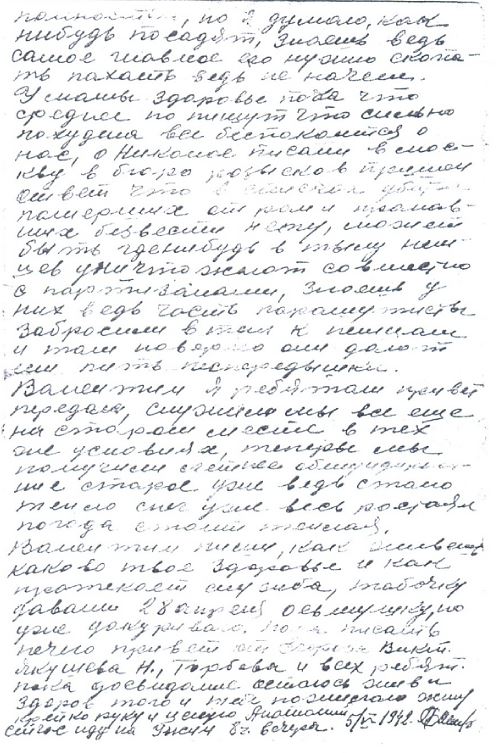 но я думаю, как
нибудь посадят, знаешь ведь
самое главное его нужно скопа-
ть пахать ведь не начем.
У мамы здоровье пока что
среднее но пишут что сильно
похудела все беспокоится о
нас, о Николае писали в мос-
кву в бюро розысков пришел
ответ что в списках
померших от ран и пропав-
ших безвести нету, может
быть где нибудь в тылу нем-
цев уничтожают совместно
с партизанами, знаешь у
них ведь часть парашутисты
забросили в тыл к немцам
и там наверно они дают
им пить
Валентин я ребятам привет
передал, служили мы все еще
на старом месте в тех
же условиях, теперь мы
получили летнее обмундирова-
ние старое уже ведь стало
тепло снег уже весь растаял
погода стоит теплая.
Валентин пиши, как живешь
каково твое здоровье и как
протекает служба, табачку
давали 28 апреля осьмушку но
уже докуриваю. пока писать
нечего привет от
Якушева Н., Горбова и всех ребят.
пока досвидание остаюсь жив и
здоров того и тебе пожелаю жму
крепко руку и целую Анатолий
сейчас иду на ужин 8 ч. вечера. 5/V 1942.